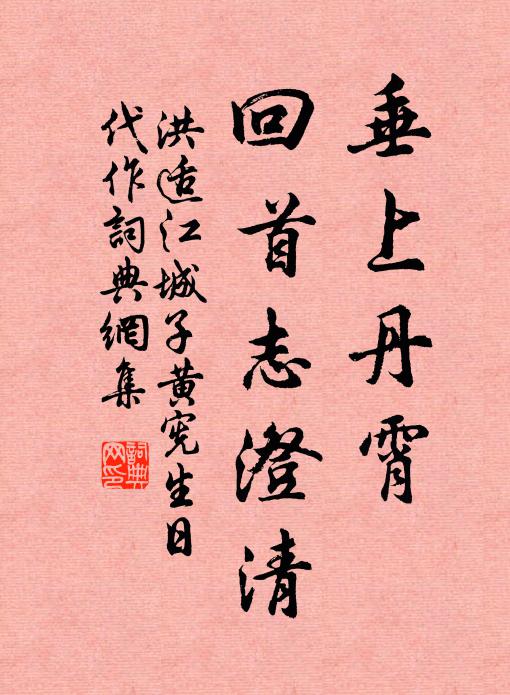 垂上丹霄
回首志澄清
洪适江城子黃宪生日
代作詞典網集
詞典
网印